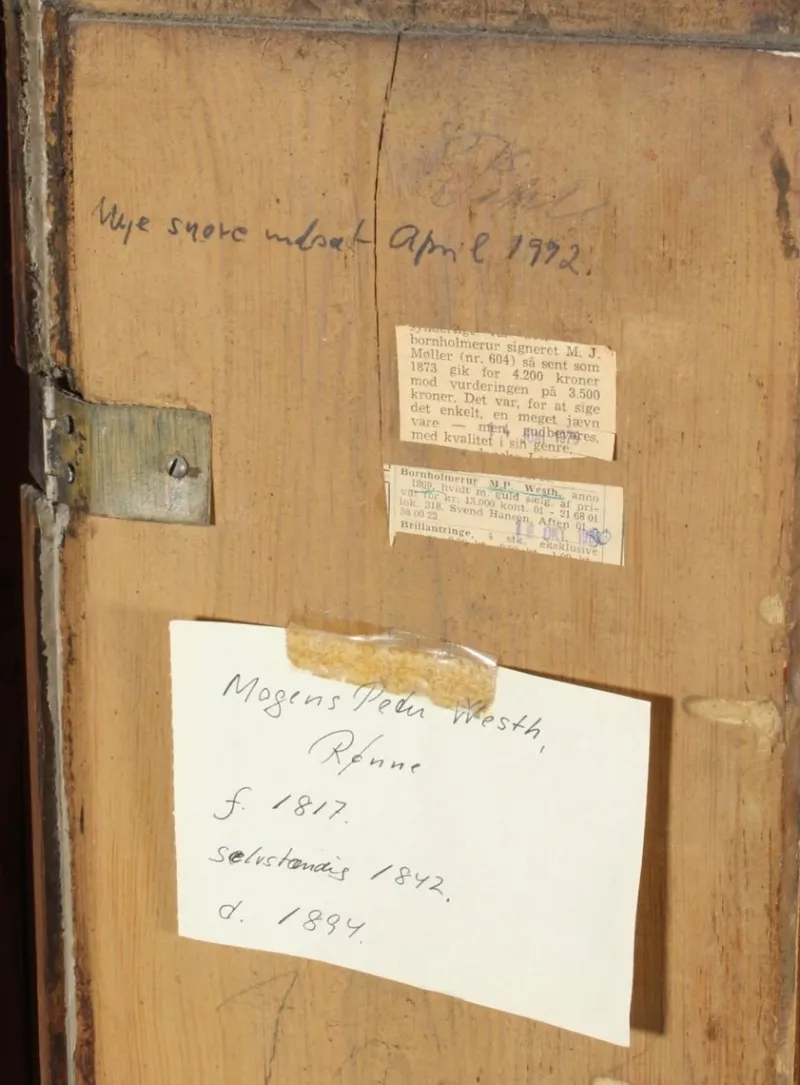 Nye snore indsat April 1992.
bornholmerur signeret M. J.
Møller (nr. 604) så sent som
1873 gik for 4.200 kroner
mod vurderingen på 3.500
kroner. Det var, for at sige
det enkelt, en meget jævn
vare — men, gudbevares,
med kvalitet i sin genre.
Bornholmerur M.P. Westh, anno
1869, hvidt m. guld sælg. af pri-
vat for kr. 13.000 kont. 01 - 21 68 01
lok. 218. Svend Hansen. Aften 01 -
58 00 22
Brillantringe, 4 stk. eksklusive
OKT.
Mogens Peder Westh,
Rønne
f. 1817.
selvstændig 1842.
d. 1894.